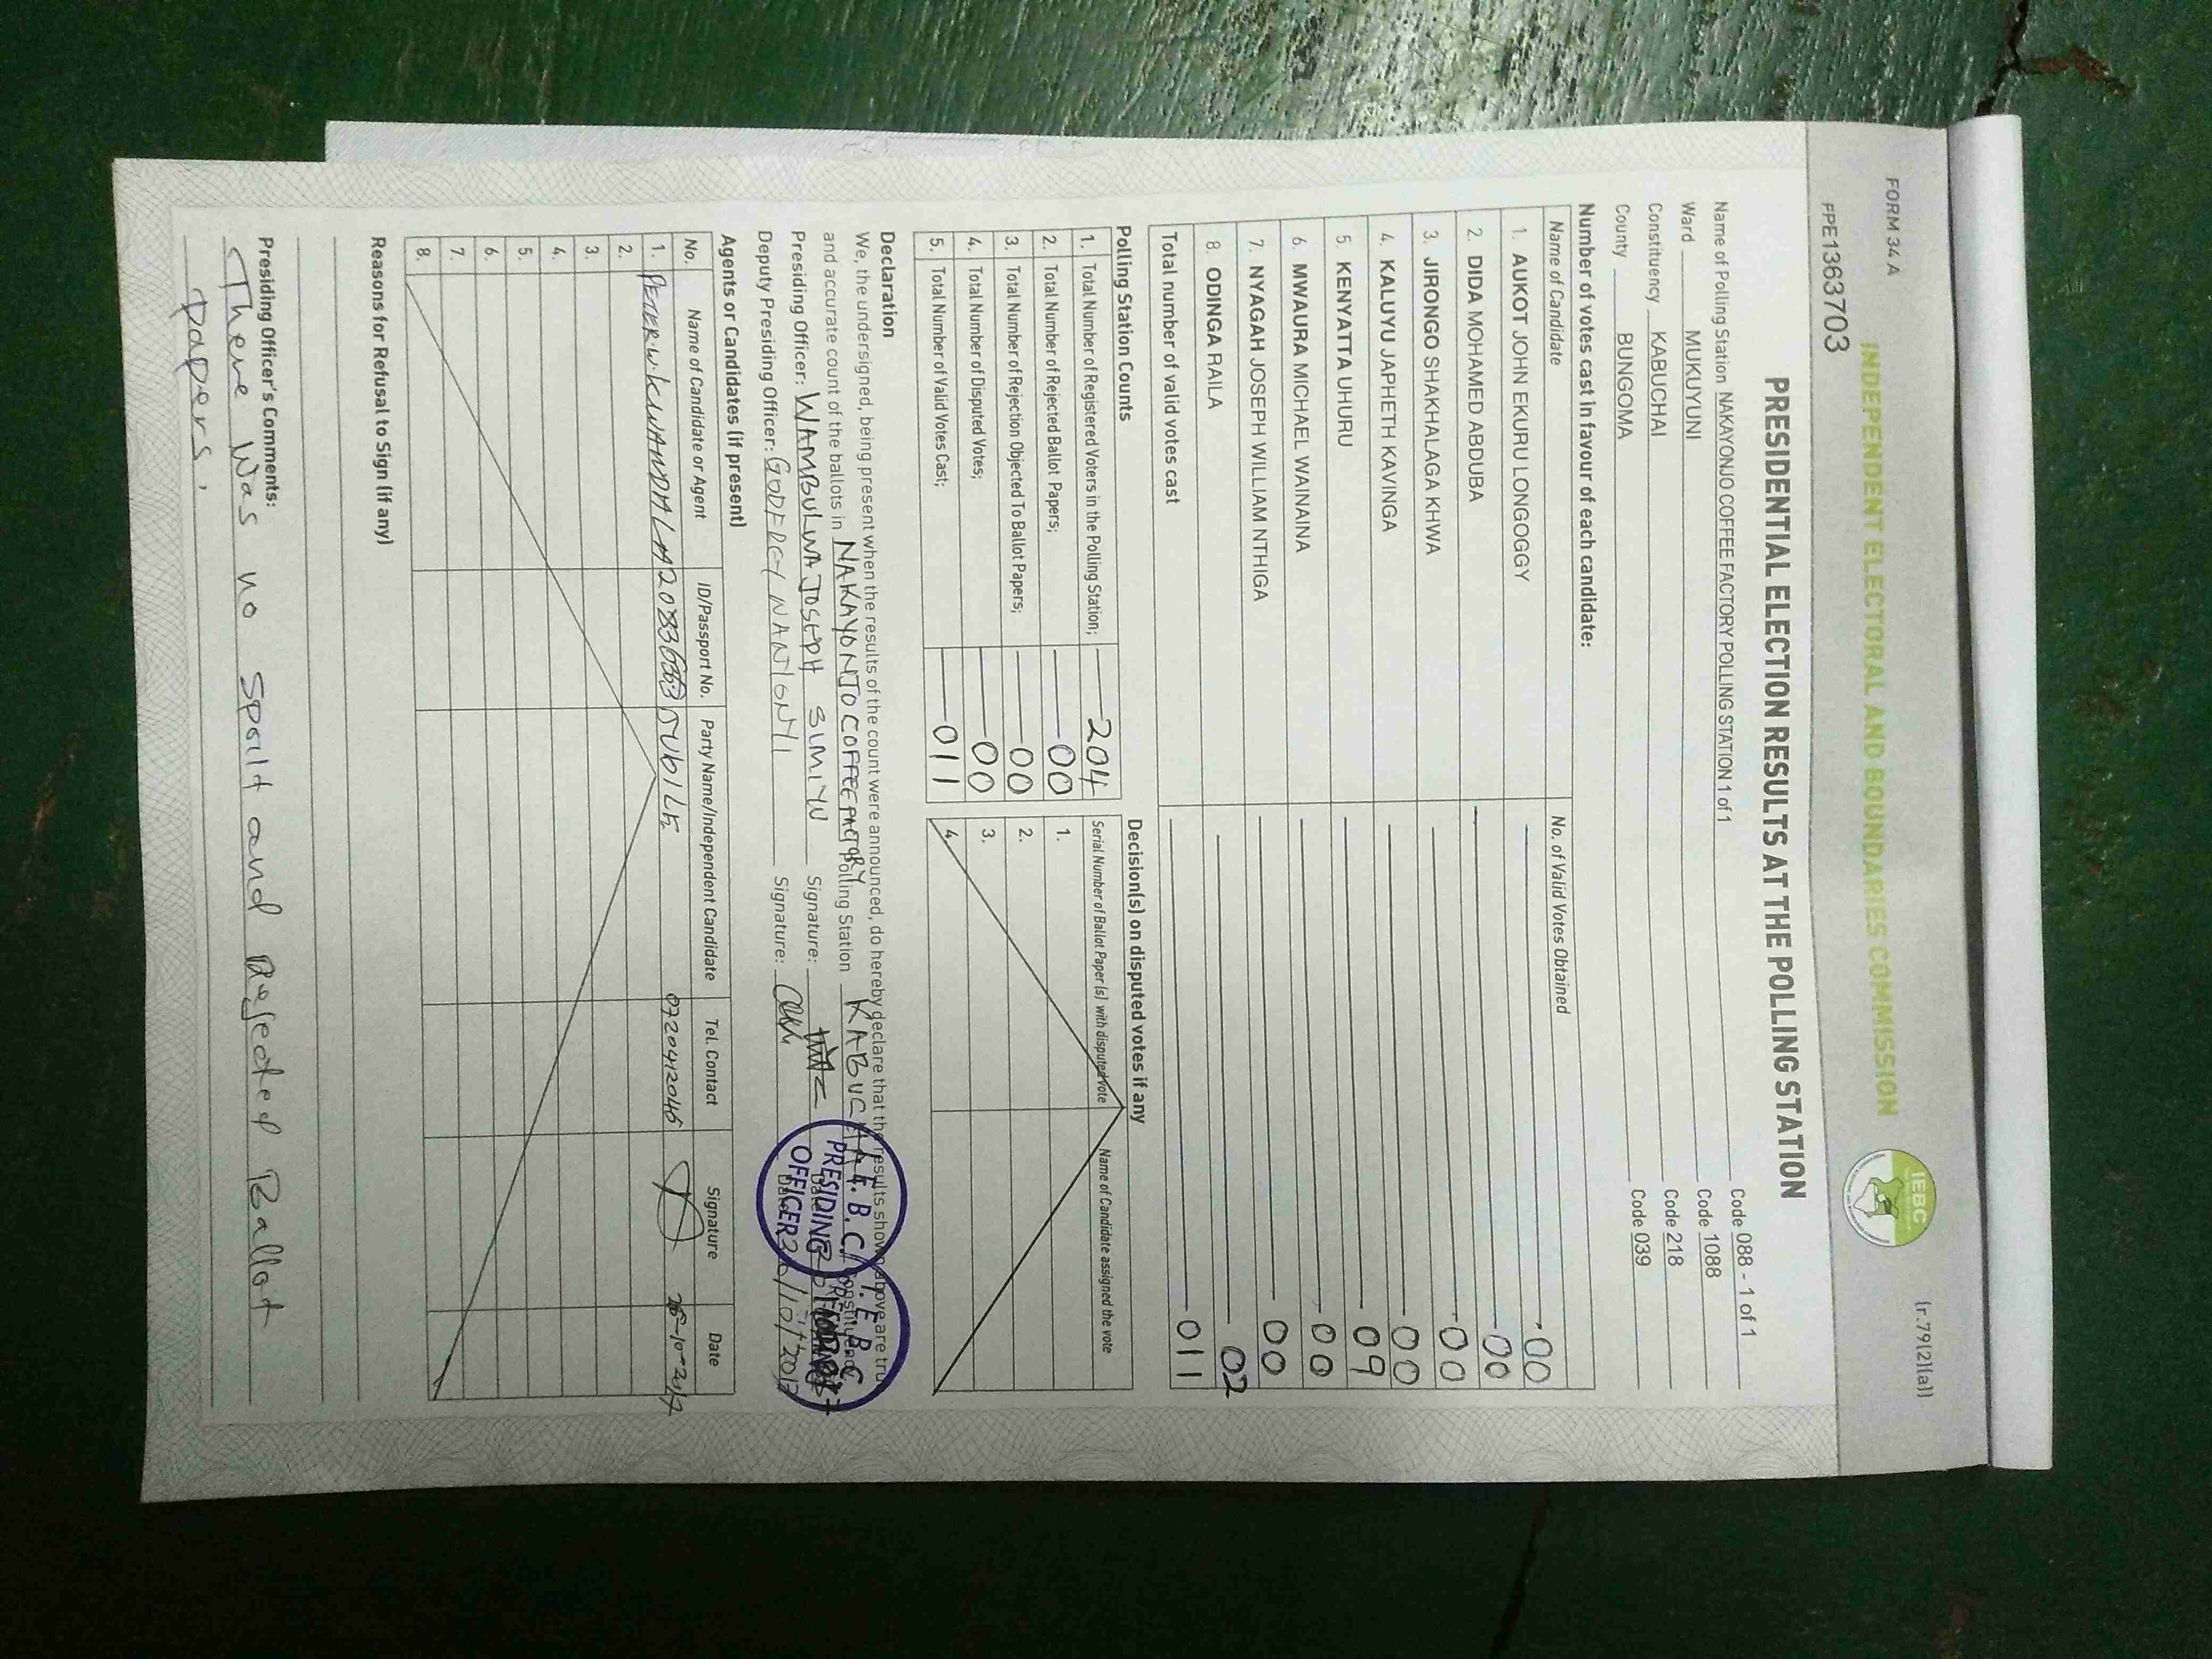 FORM 34 A
(r.79(2)(a))
INDEPENDENT ELECTORAL AND BOUNDARIES COMMISSION
IEBC
FPE1363703
PRESIDENTIAL ELECTION RESULTS AT THE POLLING STATION
Name of Polling Station NAKAYONJO COFFEE FACTORY POLLING STATION 1 of 1 Code 088 - 1 of 1
Ward MUKUYUNI Code 1088
Constituency KABUCHAI Code 218
County BUNGOMA Code 039
Number of votes cast in favour of each candidate:
Name of Candidate No. of Valid Votes Obtained
1. AUKOT JOHN EKURU LONGOGGY 00
2. DIDA MOHAMED ABDUBA 00
3. JIRONGO SHAKHALAGA KHWA 00
4. KALUYU JAPHETH KAVINGA 00
5. KENYATTA UHURU 09
6. MWAURA MICHAEL WAINAINA 00
7. NYAGAH JOSEPH WILLIAM NTHIGA 00
8. ODINGA RAILA 02
Total number of valid votes cast 011
Polling Station Counts
1. Total Number of Registered Voters in the Polling Station; 204
2. Total Number of Rejected Ballot Papers; 00
3. Total Number of Rejection Objected To Ballot Papers; 00
4. Total Number of Disputed Votes; 00
5. Total Number of Valid Votes Cast; 011
Decision(s) on disputed votes if any
Serial Number of Ballot Paper (s) with disputed vote Name of Candidate assigned the vote
1.
2.
3.
4.
Declaration
We, the undersigned, being present when the results of the count were announced, do hereby declare that the results shown above are true
and accurate count of the ballots in NAKAYONJO COFFEE FACTORY Polling Station KABUCHAI Constituency
Presiding Officer: WAMBULWA JOSEPH SIMIYU Signature:
Deputy Presiding Officer: Signature: 26/10/2017
I.E.B.C. PRESIDING OFFICER
I.E.B.C.
Agents or Candidates (if present)
No. Name of Candidate or Agent ID/Passport No. Party Name/Independent Candidate Tel. Contact Signature Date
1. PETER W. KWANDALA JUBILE 0720412046 26-10-2017
2.
3.
4.
5.
6.
7.
8.
Reasons for Refusal to Sign (if any)
Presiding Officer's Comments:
There Was no Spoilt and Rejected Ballot
papers.